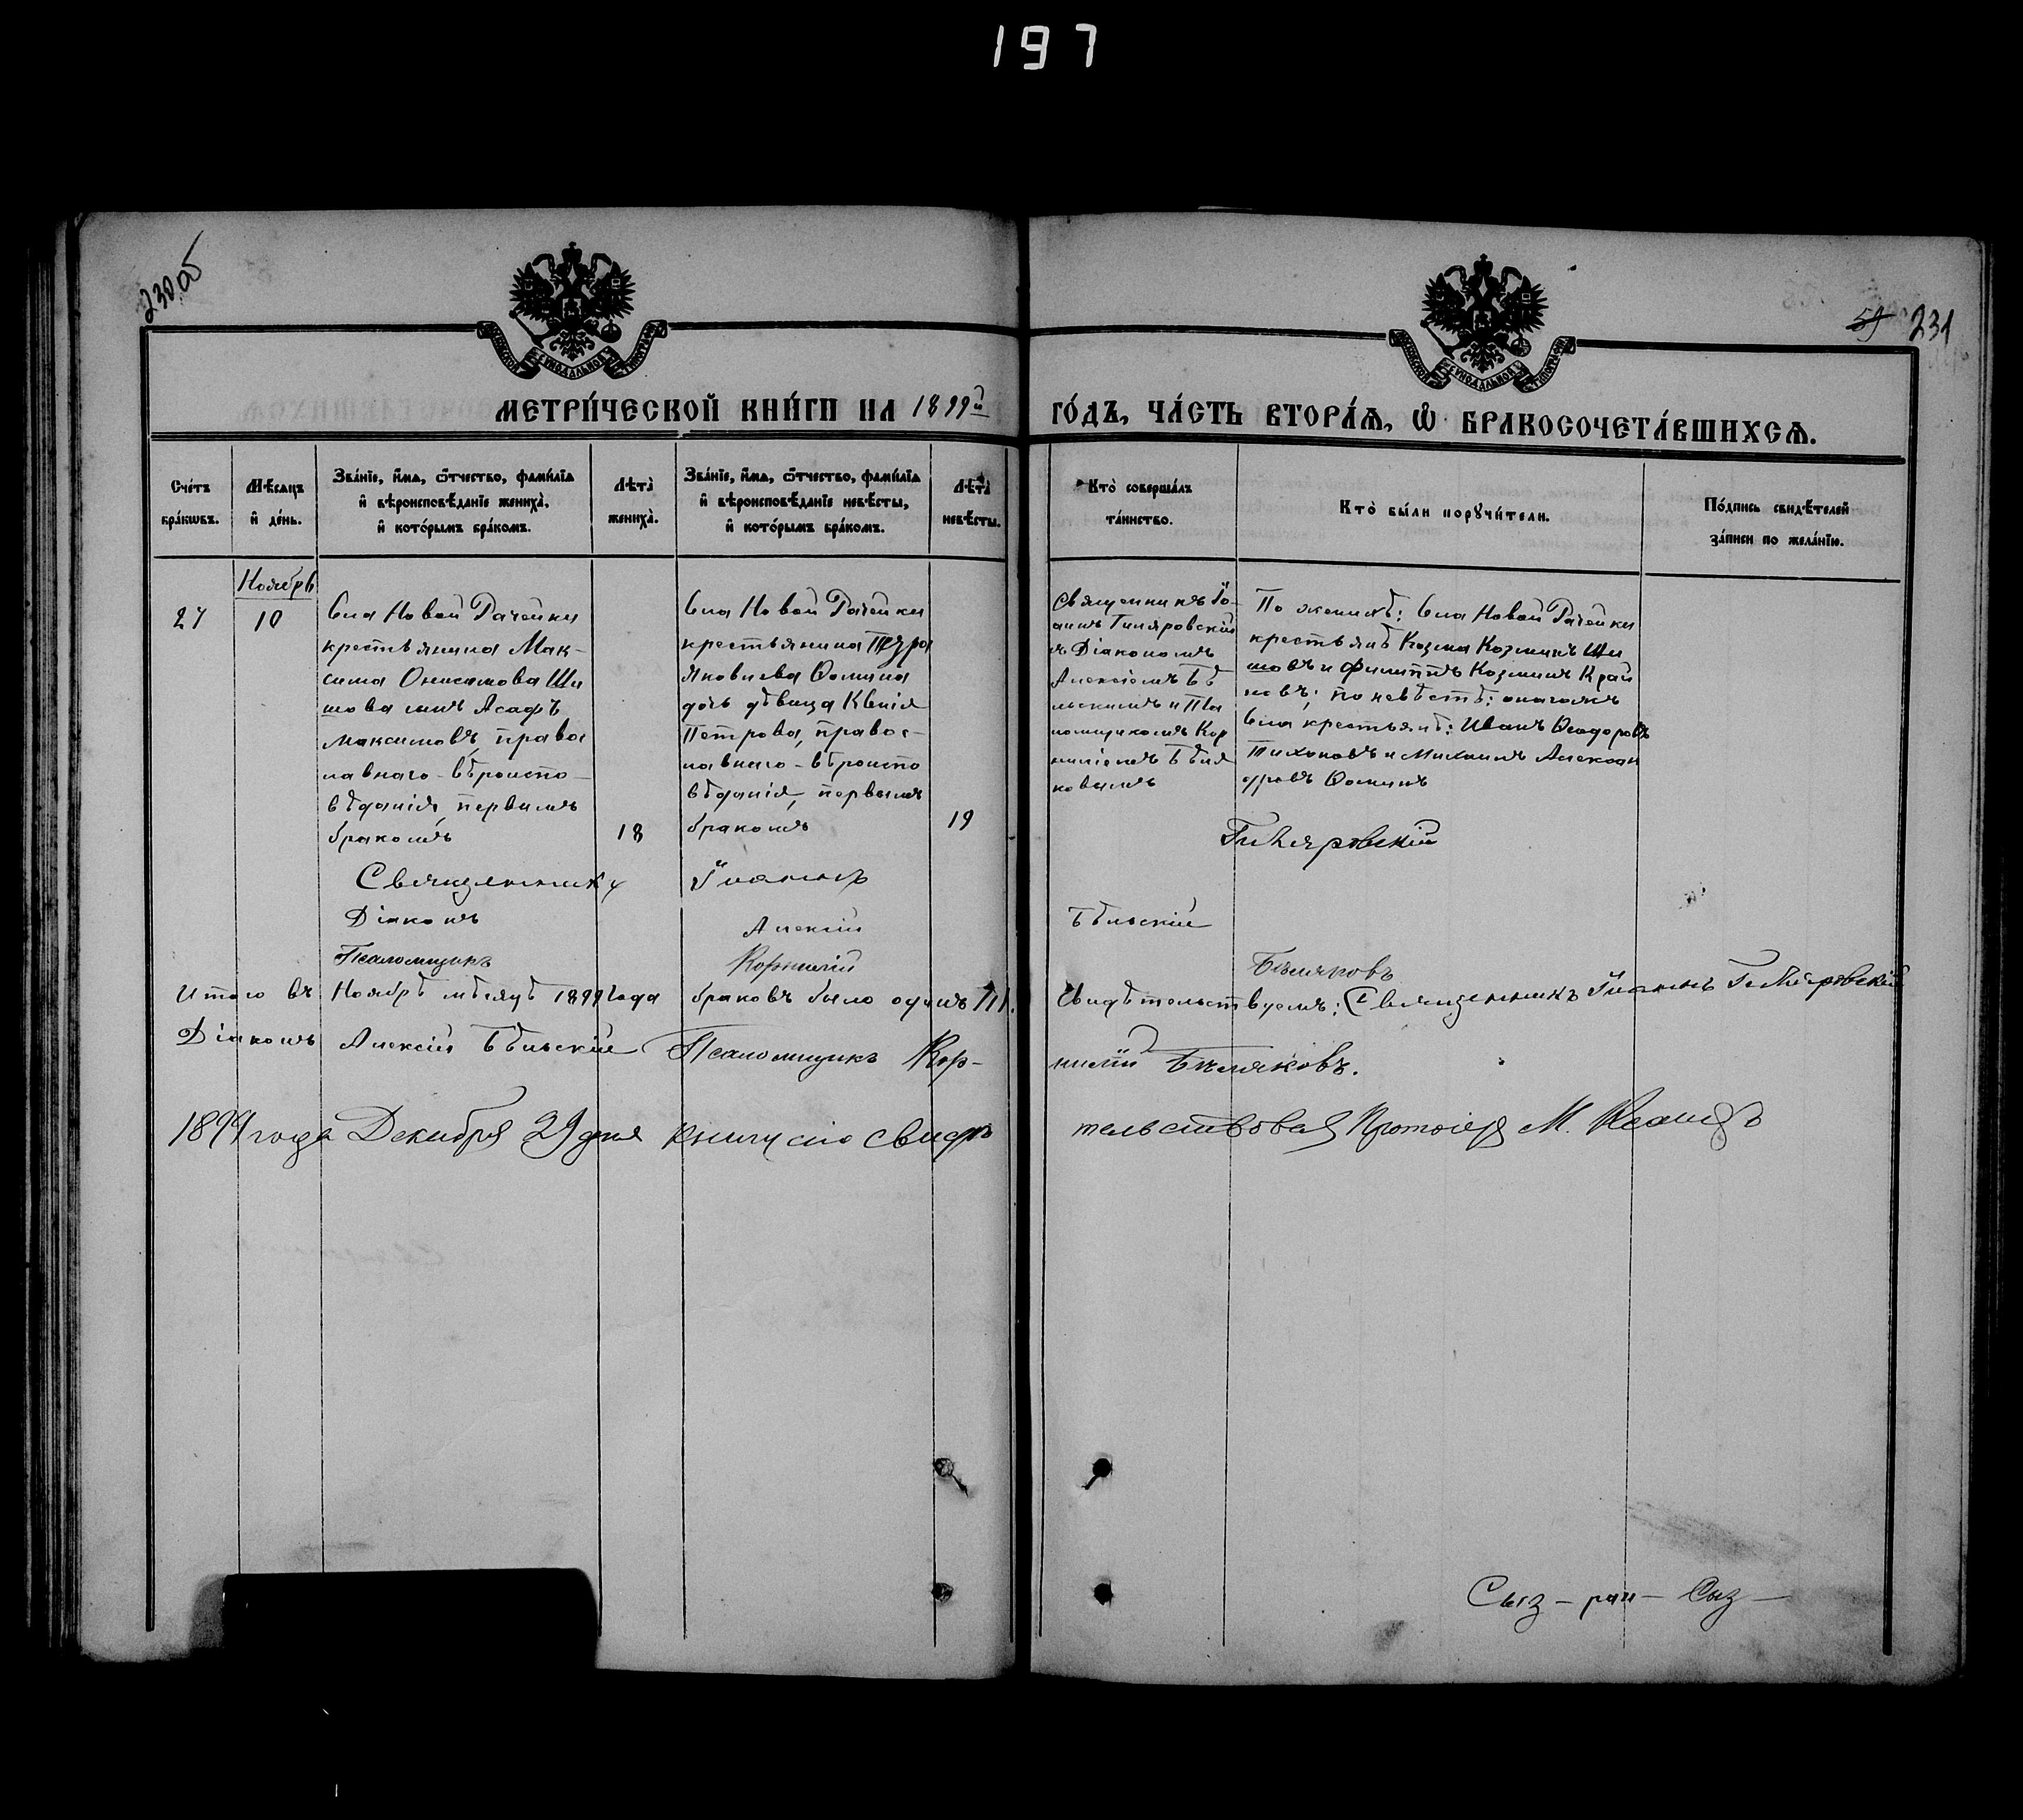 197
230 об
59 231
МЕТРИ́ЧЕСКОЙ КНИ́ГИ НА 1899й ГО́ДЪ, ЧА́СТЬ ВТОРА́Ѧ, Ѽ БРАКОСОЧЕТА́ВШИХСѦ.
Сче́тъ
бра́кѡвъ.
Мѣ́сѧцъ
и҆ де́нь.
Зва́нїе, и҆́мѧ, ѻ҆́тчество, фами́лїѧ
и҆ вѣроисповѣ́данїе жениха̀,
и҆ кото́рымъ бра́комъ.
Лѣта̀
жениха̀.
Зва́нїе, и҆́мѧ, ѻ҆́тчество, фами́лїѧ
и҆ вѣроисповѣ́данїе невѣ́сты,
и҆ кото́рымъ бра́комъ.
Лѣта̀
невѣ́сты.
Кто̀ соверша́лъ
та́инство.
Кто̀ бы́ли порꙋчи́тели.
По́дпись свидѣ́телей
за́писи по жела́нїю.
Ноябрь
27
10
Села Новой Рачейки
крестьянина Мак-
сима Онисимова Ши
шова сынъ Асафъ
Максимовъ, правос
лавнаго-вѣроиспо-
вѣданія, первымъ
бракомъ
18
Села Новой Рачейки
крестьянина Петра
Яковлева Ѳомина
дочь дѣвица Ксенія
Петрова, правос-
лавнаго-вѣроиспо
вѣданія, первымъ
бракомъ
19
Священникъ Іо-
аннъ Гиляровскій
съ Діакономъ
Алексіемъ Бѣ
льскимъ и Пса
ломщикомъ Кор
ниліемъ Бѣля
ковымъ
По женихѣ: Села Новой Рачейки
крестьянѣ Козма Козминъ Ши
шовъ и Филиппъ Козминъ Край
новъ; по невѣстѣ: онагожъ
Села крестьянѣ: Иванъ Ѳеодоровъ
Тихоновъ и Михаилъ Алексан
дровъ Ѳоминъ
Священникъ Іоаннъ Гиляровскій
Діаконъ Алексій Бѣльскій
Псаломщикъ Корнилій Бѣляковъ
Итого въ Ноябрѣ мѣсяцѣ 1899 года браковъ было одинъ /1/. Свидѣтельствуемъ: Священникъ Іоаннъ Гиляровскій
Діаконъ Алексій Бѣльскій Псаломщикъ Кор-
нилій Бѣляковъ.
1899 года Декабря 29 дня книгу сію свидѣ
тельствовалъ Протоіерей М.
Сыз-ран-Сыз-